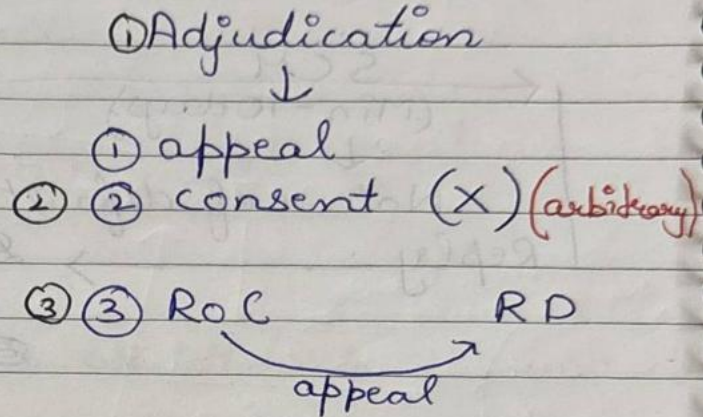 ① Adjudication
↓
① appeal
② ② consent (X) (arbitrary)
③ ③ RoC RD
appeal